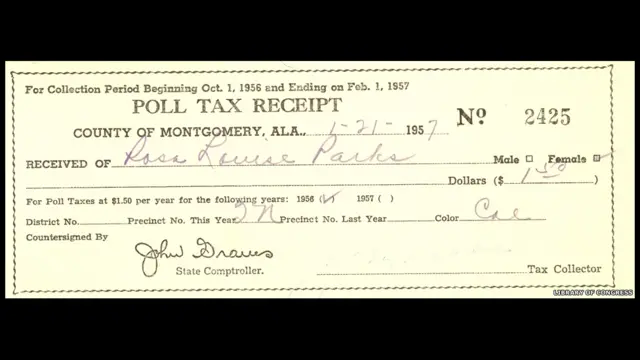 For Collection Period Beginning Oct. 1, 1956 and Ending on Feb. 1, 1957
POLL TAX RECEIPT
COUNTY OF MONTGOMERY, ALA., 1-21- 1957 Nº 2425
RECEIVED OF Rosa Louise Parks Male Female
Dollars ($ 1.50 )
For Poll Taxes at $1.50 per year for the following years: 1956 (✓) 1957 ( )
District No. Precinct No. This Year 2N Precinct No. Last Year Color Col
Countersigned By
John Graves
State Comptroller. Tax Collector
LIBRARY OF CONGRESS